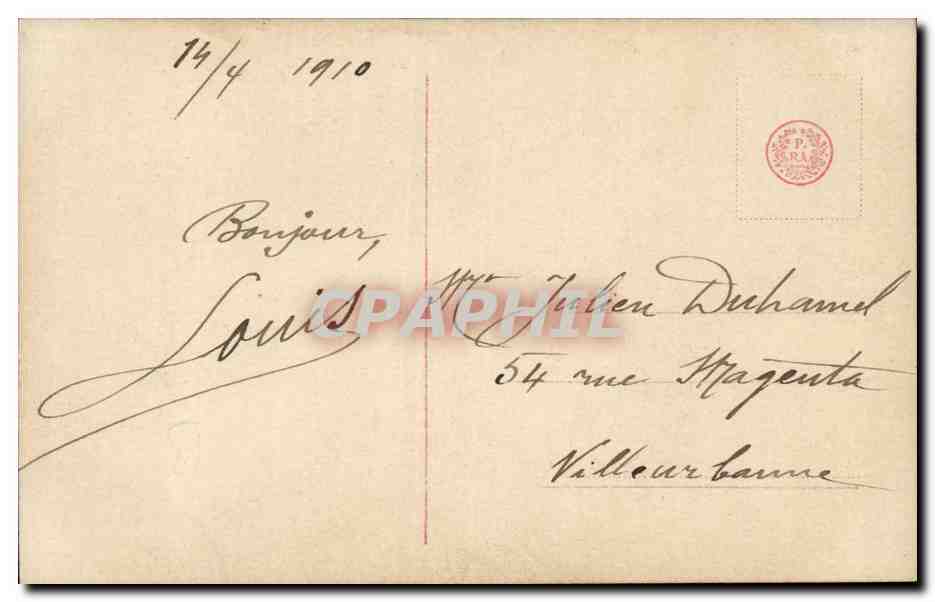 14/4 1910
Bonjour,
Louis
P.
RA.
Mr Julien Duhamel
54 rue Magenta
Villeurbanne
CPAPHIL